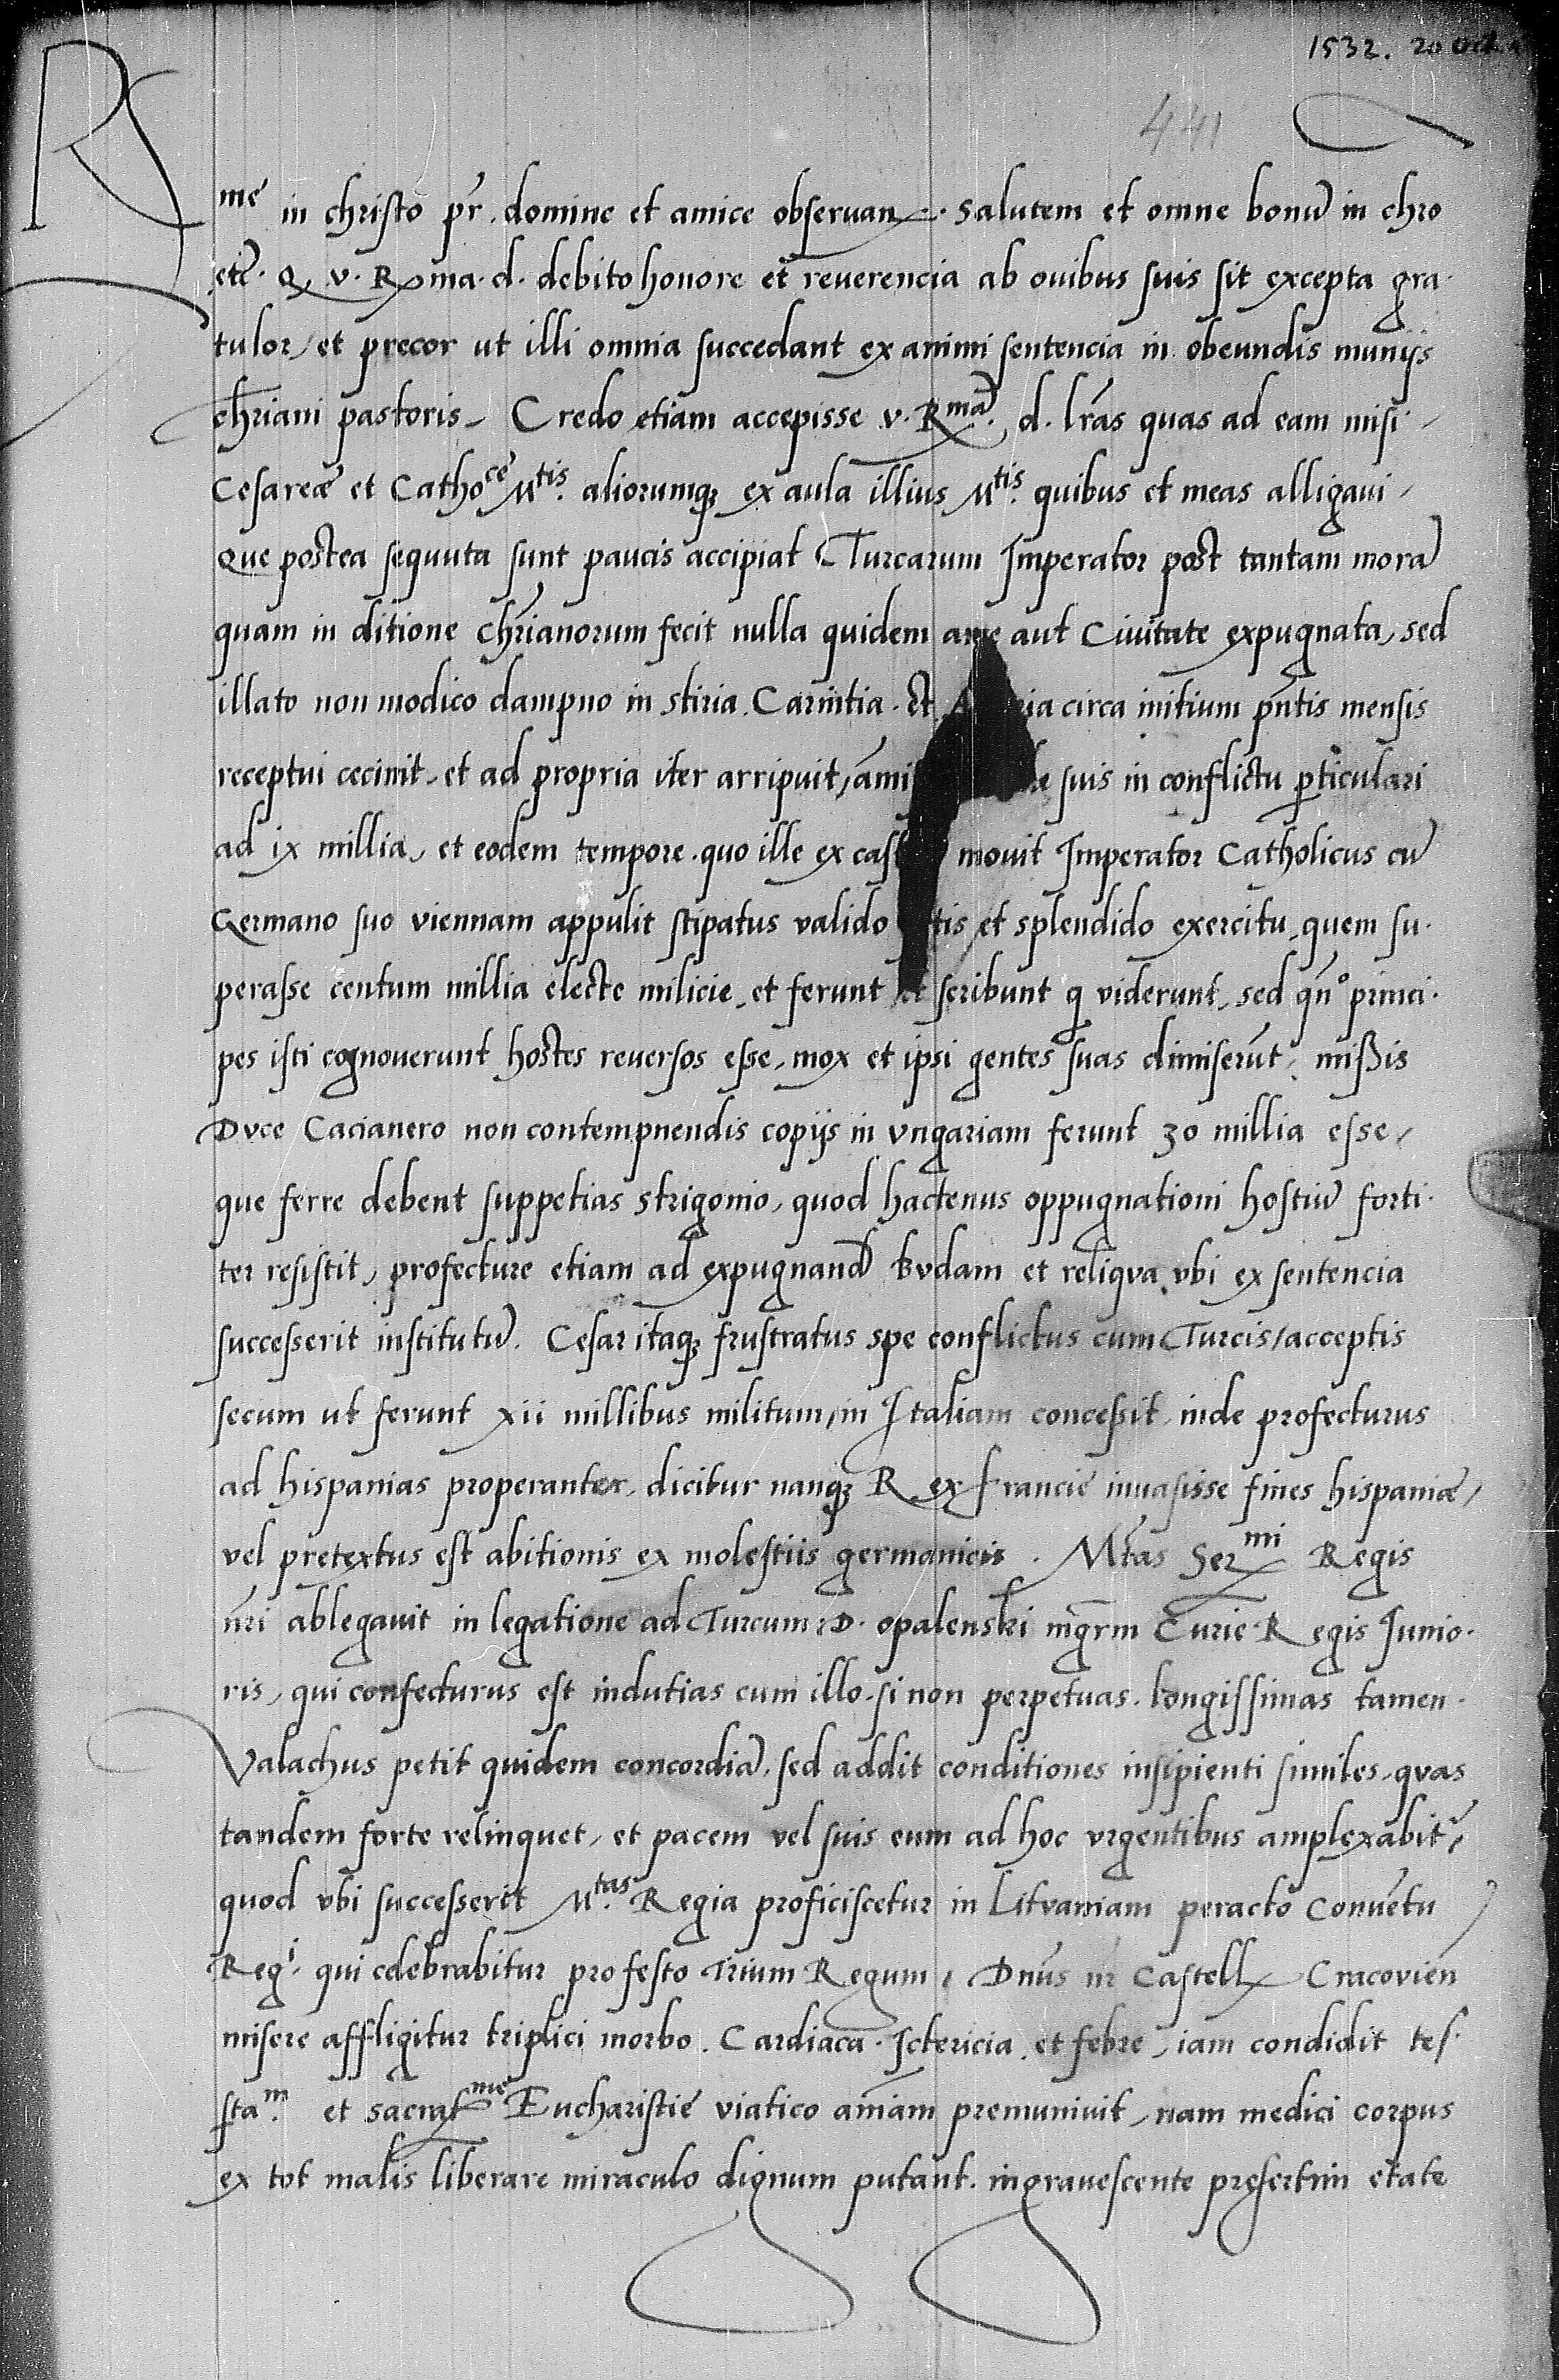 1532. 20 Oct.
441
R
me in christo pr̃. domine et amice obseruan. Salutem et omne bonũ in chr̃o
etc̃. Q v. R ma. d. debito honore et reuerencia ab ouibus suis sit excepta gra.
tulor, et precor ut illi omnia succedant ex animi sentencia in obeundis munijs
chr̃iani pastoris. Credo etiam accepisse v. Rmã. d. lr̃as quas ad eam misi.
Cesareæ et Cathoce Mtis. aliorumqȝ ex aula illius Mtis. quibus et meas alligaui,
Que postea sequuta sunt paucis accipiat Turcarum Imperator post tantam morã
quam in ditione chr̃ianorum fecit nulla quidem arce aut Ciuitate expugnata, sed
illato non modico dampno in Stiria. Carintia. et A ria circa initium pñtis mensis
receptui cecinit, et ad propria iter arripuit, amis suis in conflictu ꝑticulari
ad ix millia, et eodem tempore. quo ille ex cast mouit Imperator Catholicus cũ
Germano suo viennam appulit stipatus valido tis et splendido exercitu, quem su.
perasse centum millia electe milicie, et ferunt et scribunt q viderunt, sed qñ° princi.
pes isti cognouerunt hostes reuersos esse, mox et ipsi gentes suas dimiserũt, mißis
Duce Cacianero non contempnendis copijs in vngariam ferunt 30 millia esse,
que ferre debent suppetias Strigonio, quod hactenus oppugnationi hostiũ forti.
ter resistit, profecture etiam ad expugnand̃ Budam et reliqua vbi ex sentencia
successerit institutũ. Cesar itaqȝ frustratus spe conflictus cum Turcis, acceptis
secum ut ferunt xii millibus militum, in Italiam conceßit, inde profecturus
ad hispanias properanter, dicitur nanqȝ Rex Francie inuasisse fines hispaniæ,
vel pretextus est abitionis ex molestiis germanicis. Mtas Sermi Regis
nr̃i ablegauit in legatione ad Turcum D. opalenski mgr̃m Curie Regis Junio.
ris, qui confecturus est indutias cum illo, si non perpetuas. longissimas tamen.
Valachus petit quidem concordiã, sed addit conditiones insipienti similes, quas
tandem forte relinquet, et pacem vel suis eum ad hoc vrgentibus amplexabit᷑,
quod vbi successerit Mtas. Regia proficiscetur in Lituaniam peracto Conuẽtu
Regi. qui celebrabitur pro festo Trium Regum, Dñus nr̃ Castell Cracovien̄
misere affligitur triplici morbo. Cardiaca. Ictericia. et febre, iam condidit tes.
stam. et sacratme Eucharistie viatico aĩam premuniuit, nam medici corpus
ex tot malis liberare miraculo dignum putant. ingrauescente presertim etate